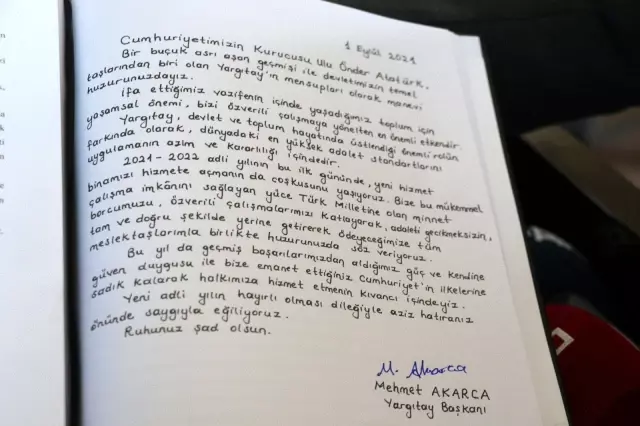 1 Eylül 2021
Cumhuriyetimizin Kurucusu Ulu Önder Atatürk,
Bir buçuk asrı aşan geçmişi ile devletimizin temel
taşlarından biri olan Yargıtay'ın mensupları olarak manevi
huzurunuzdayız.
İfa ettiğimiz vazifenin içinde yaşadığımız toplum için
yaşamsal önemi, bizi özverili çalışmaya yönelten en önemli etkendir.
Yargıtay, devlet ve toplum hayatında üstlendiği önemli rolün
farkında olarak, dünyadaki en yüksek adalet standartlarını
uygulamanın azim ve kararlılığı içindedir.
2021-2022 adli yılının bu ilk gününde, yeni hizmet
binamızı hizmete açmanın da coşkusunu yaşıyoruz. Bize bu mükemmel
çalışma imkânını sağlayan yüce Türk Milletine olan minnet
borcumuzu, özverili çalışmalarımızı katlayarak, adaleti gecikmeksizin,
tam ve doğru şekilde yerine getirerek ödeyeceğimize tam
meslektaşlarımla birlikte huzurunuzda söz veriyoruz.
Bu yıl da geçmiş başarılarımızdan aldığımız güç ve kendine
güven duygusu ile bize emanet ettiğiniz Cumhuriyet'in ilkelerine
sadık kalarak halkımıza hizmet etmenin kıvancı içindeyiz.
Yeni adli yılın hayırlı olması dileğiyle aziz hatıranız
önünde saygıyla eğiliyoruz.
Ruhunuz şad olsun.
M. Akarca
Mehmet AKARCA
Yargıtay Başkanı